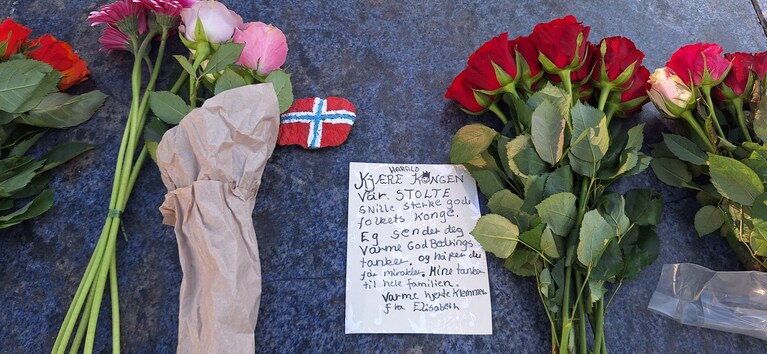 HARALD
KJÆRE KONGEN
Vår. STOLTE
Snille sterke gode
folkets Konge.
Eg sender deg
varme God Bedrings
tanker. og håper du
får mirakler. Mine tanker
til hele familien.
Varme hjerte Klemmer
fra Elisabeth